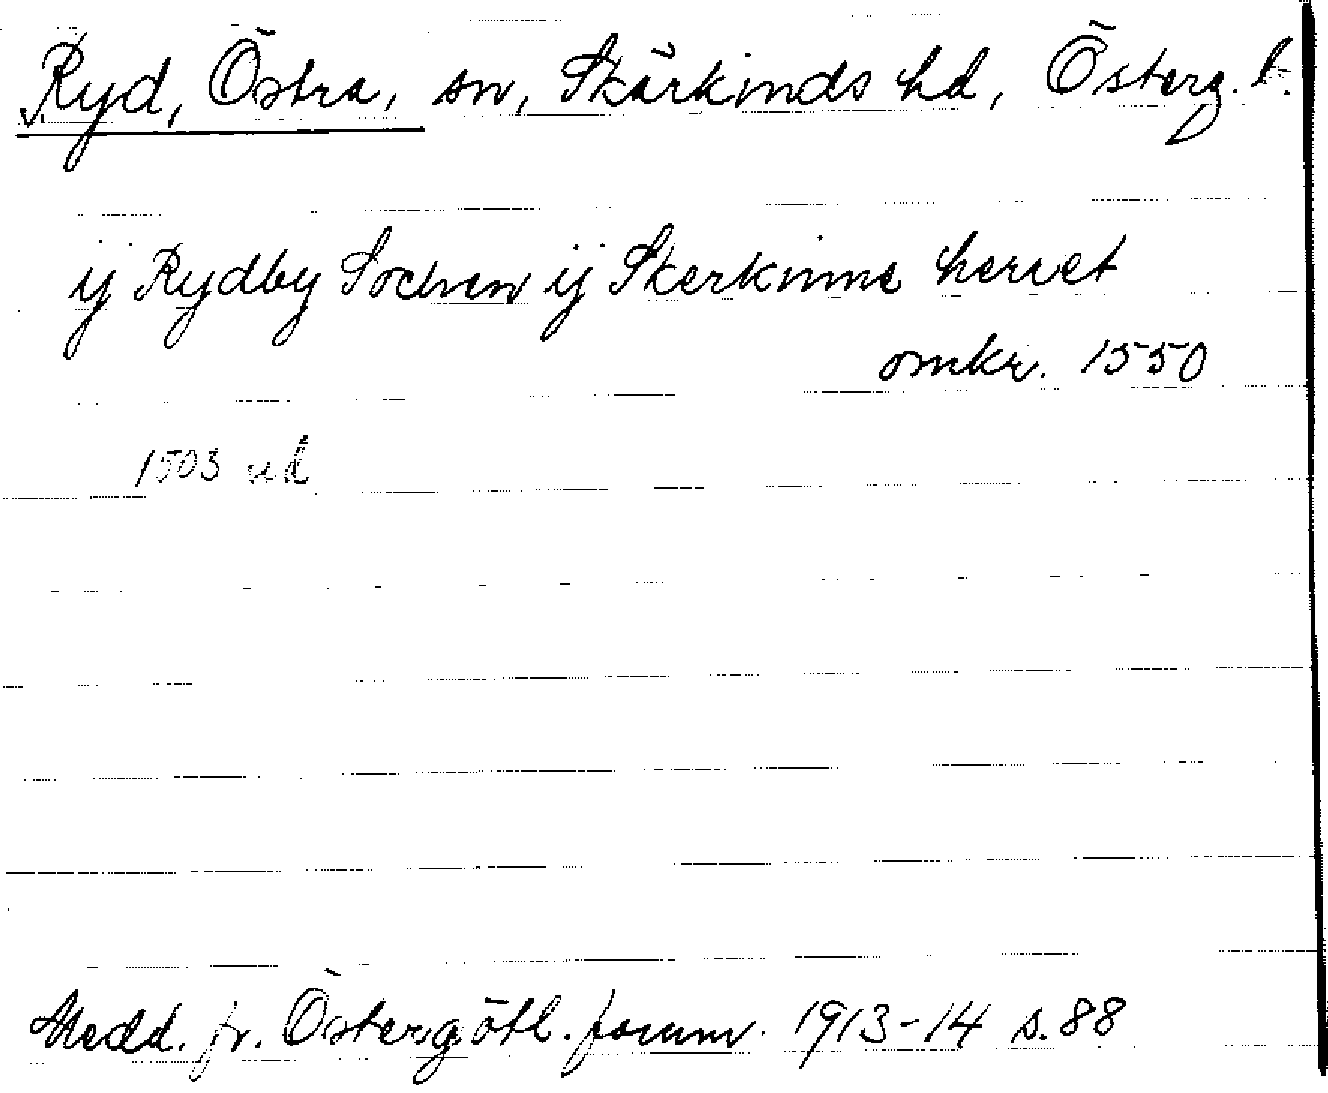 Ryd, Östra, sn, Skärkinds hd, Österg. l.
ij Rydby Sochen ij Skerkinne heret
omkr. 1550
1503 ud
Medd. fr. Östergötl. fornm. 1913-14 s. 88